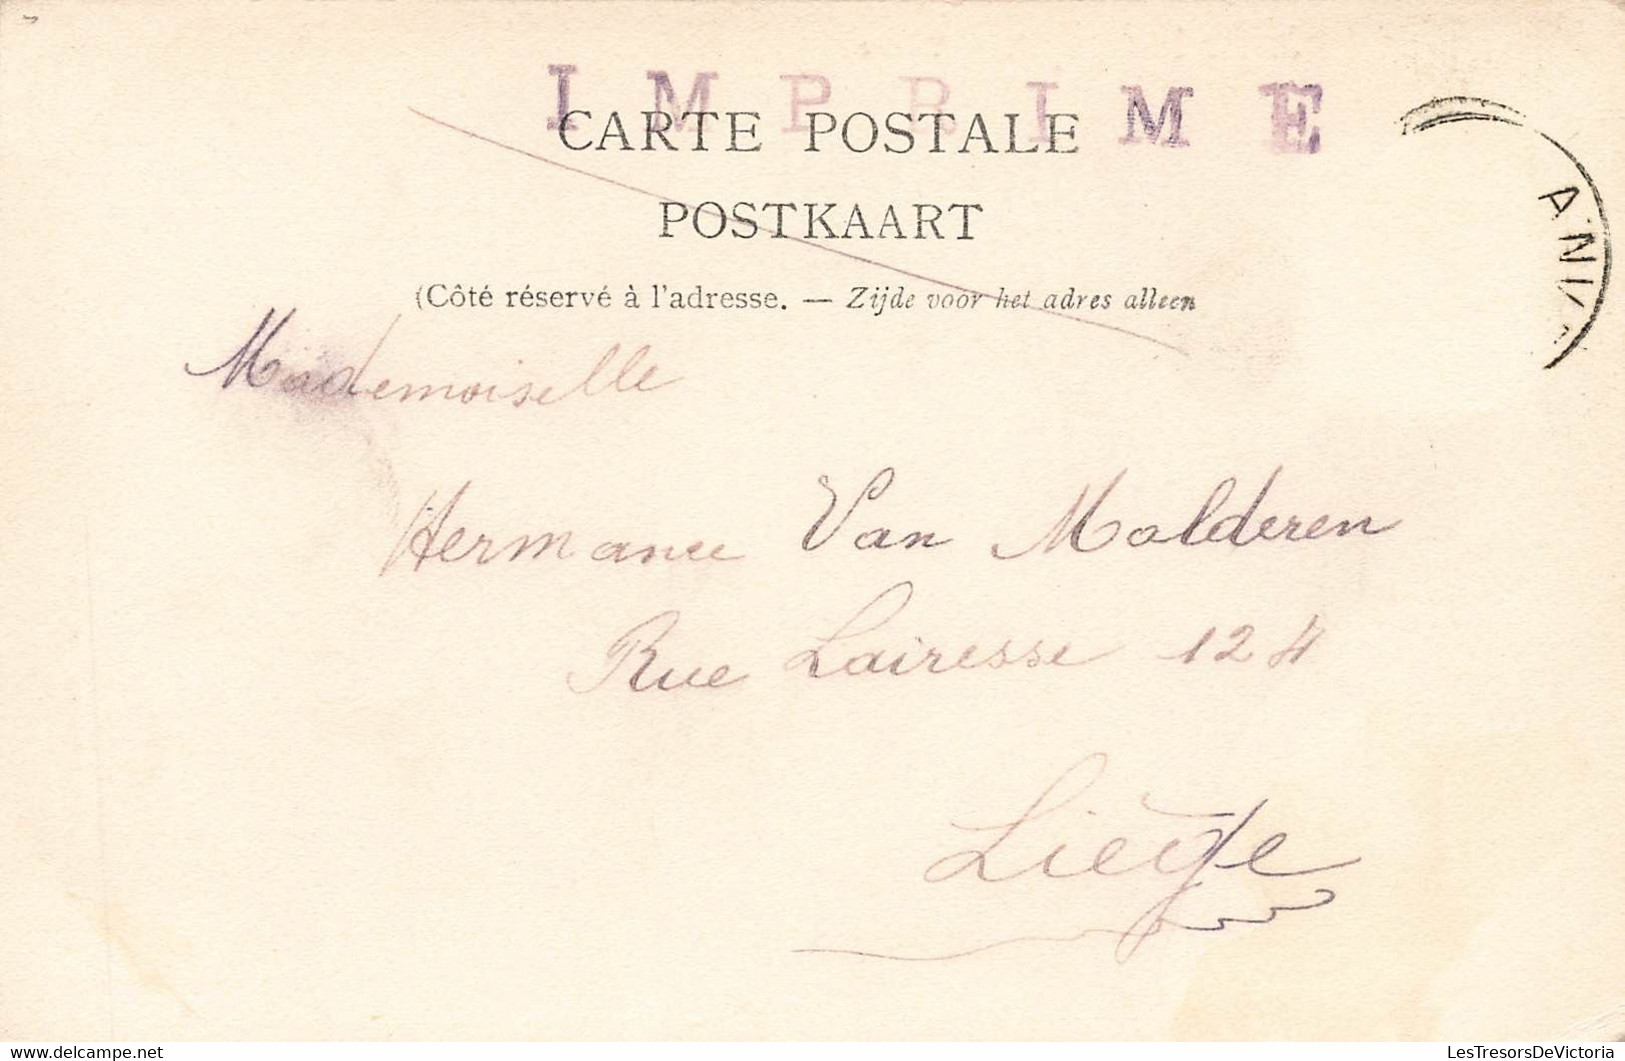 IMPRIME
CARTE POSTALE
POSTKAART
(Côté réservé à l'adresse. — Zijde voor het adres alleen
Mademoiselle
Hermance Van Malderen
Rue Lairesse 124
Liège
delcampe.net
LesTresorsDeVictoria